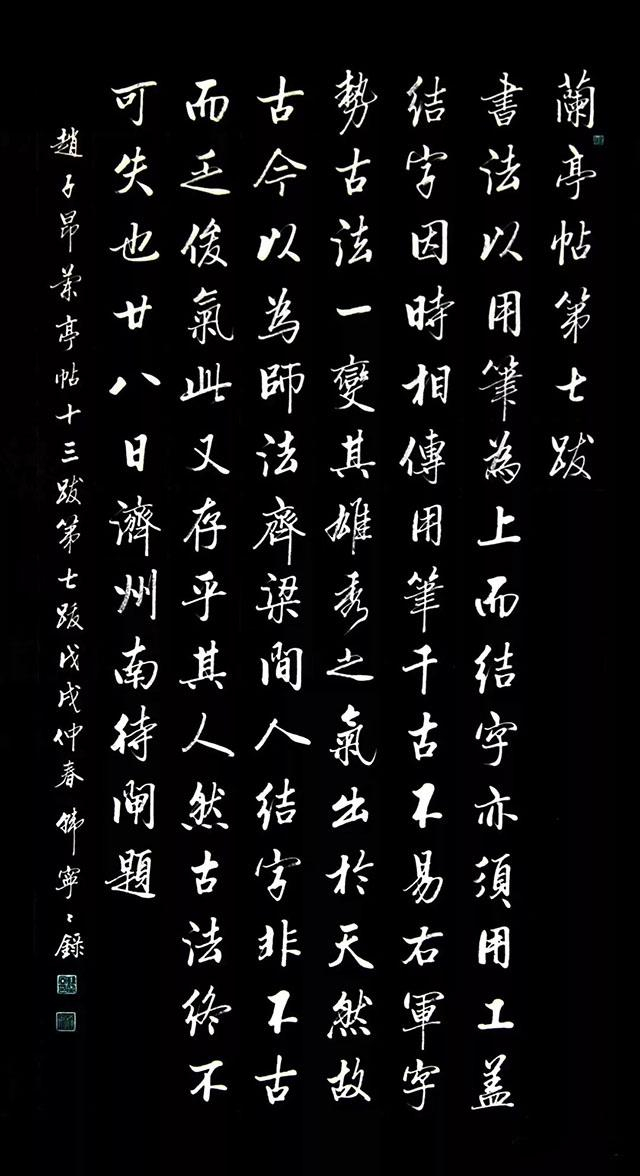 蘭亭帖第七跋
書法以用筆為上而結字亦須用工蓋
結字因時相傳用筆千古不易右軍字
勢古法一變其雄秀之氣出於天然故
古今以為師法齊梁間人結字非不古
而乏俊氣此又存乎其人然古法終不
可失也廿八日濟州南待閘題
趙子昂蘭亭帖十三跋第七跋戊戌仲春韩寧〻錄